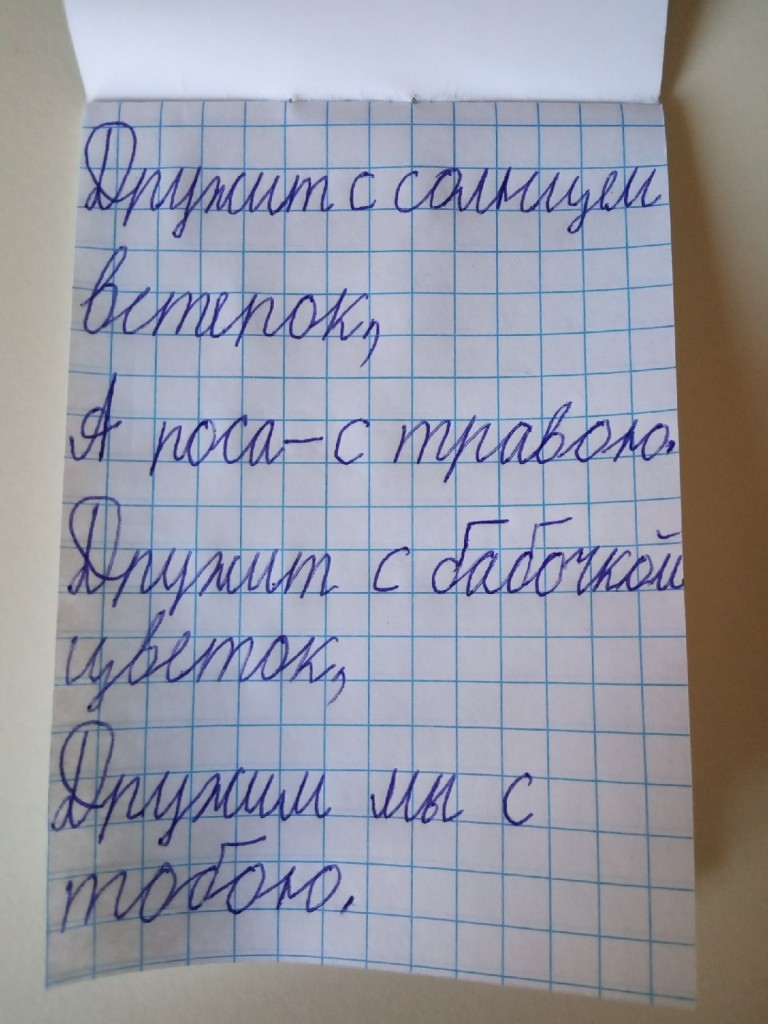 Дружит с солнцем
ветерок,
А роса – с травою.
Дружит с бабочкой
цветок,
Дружим мы с
тобою.